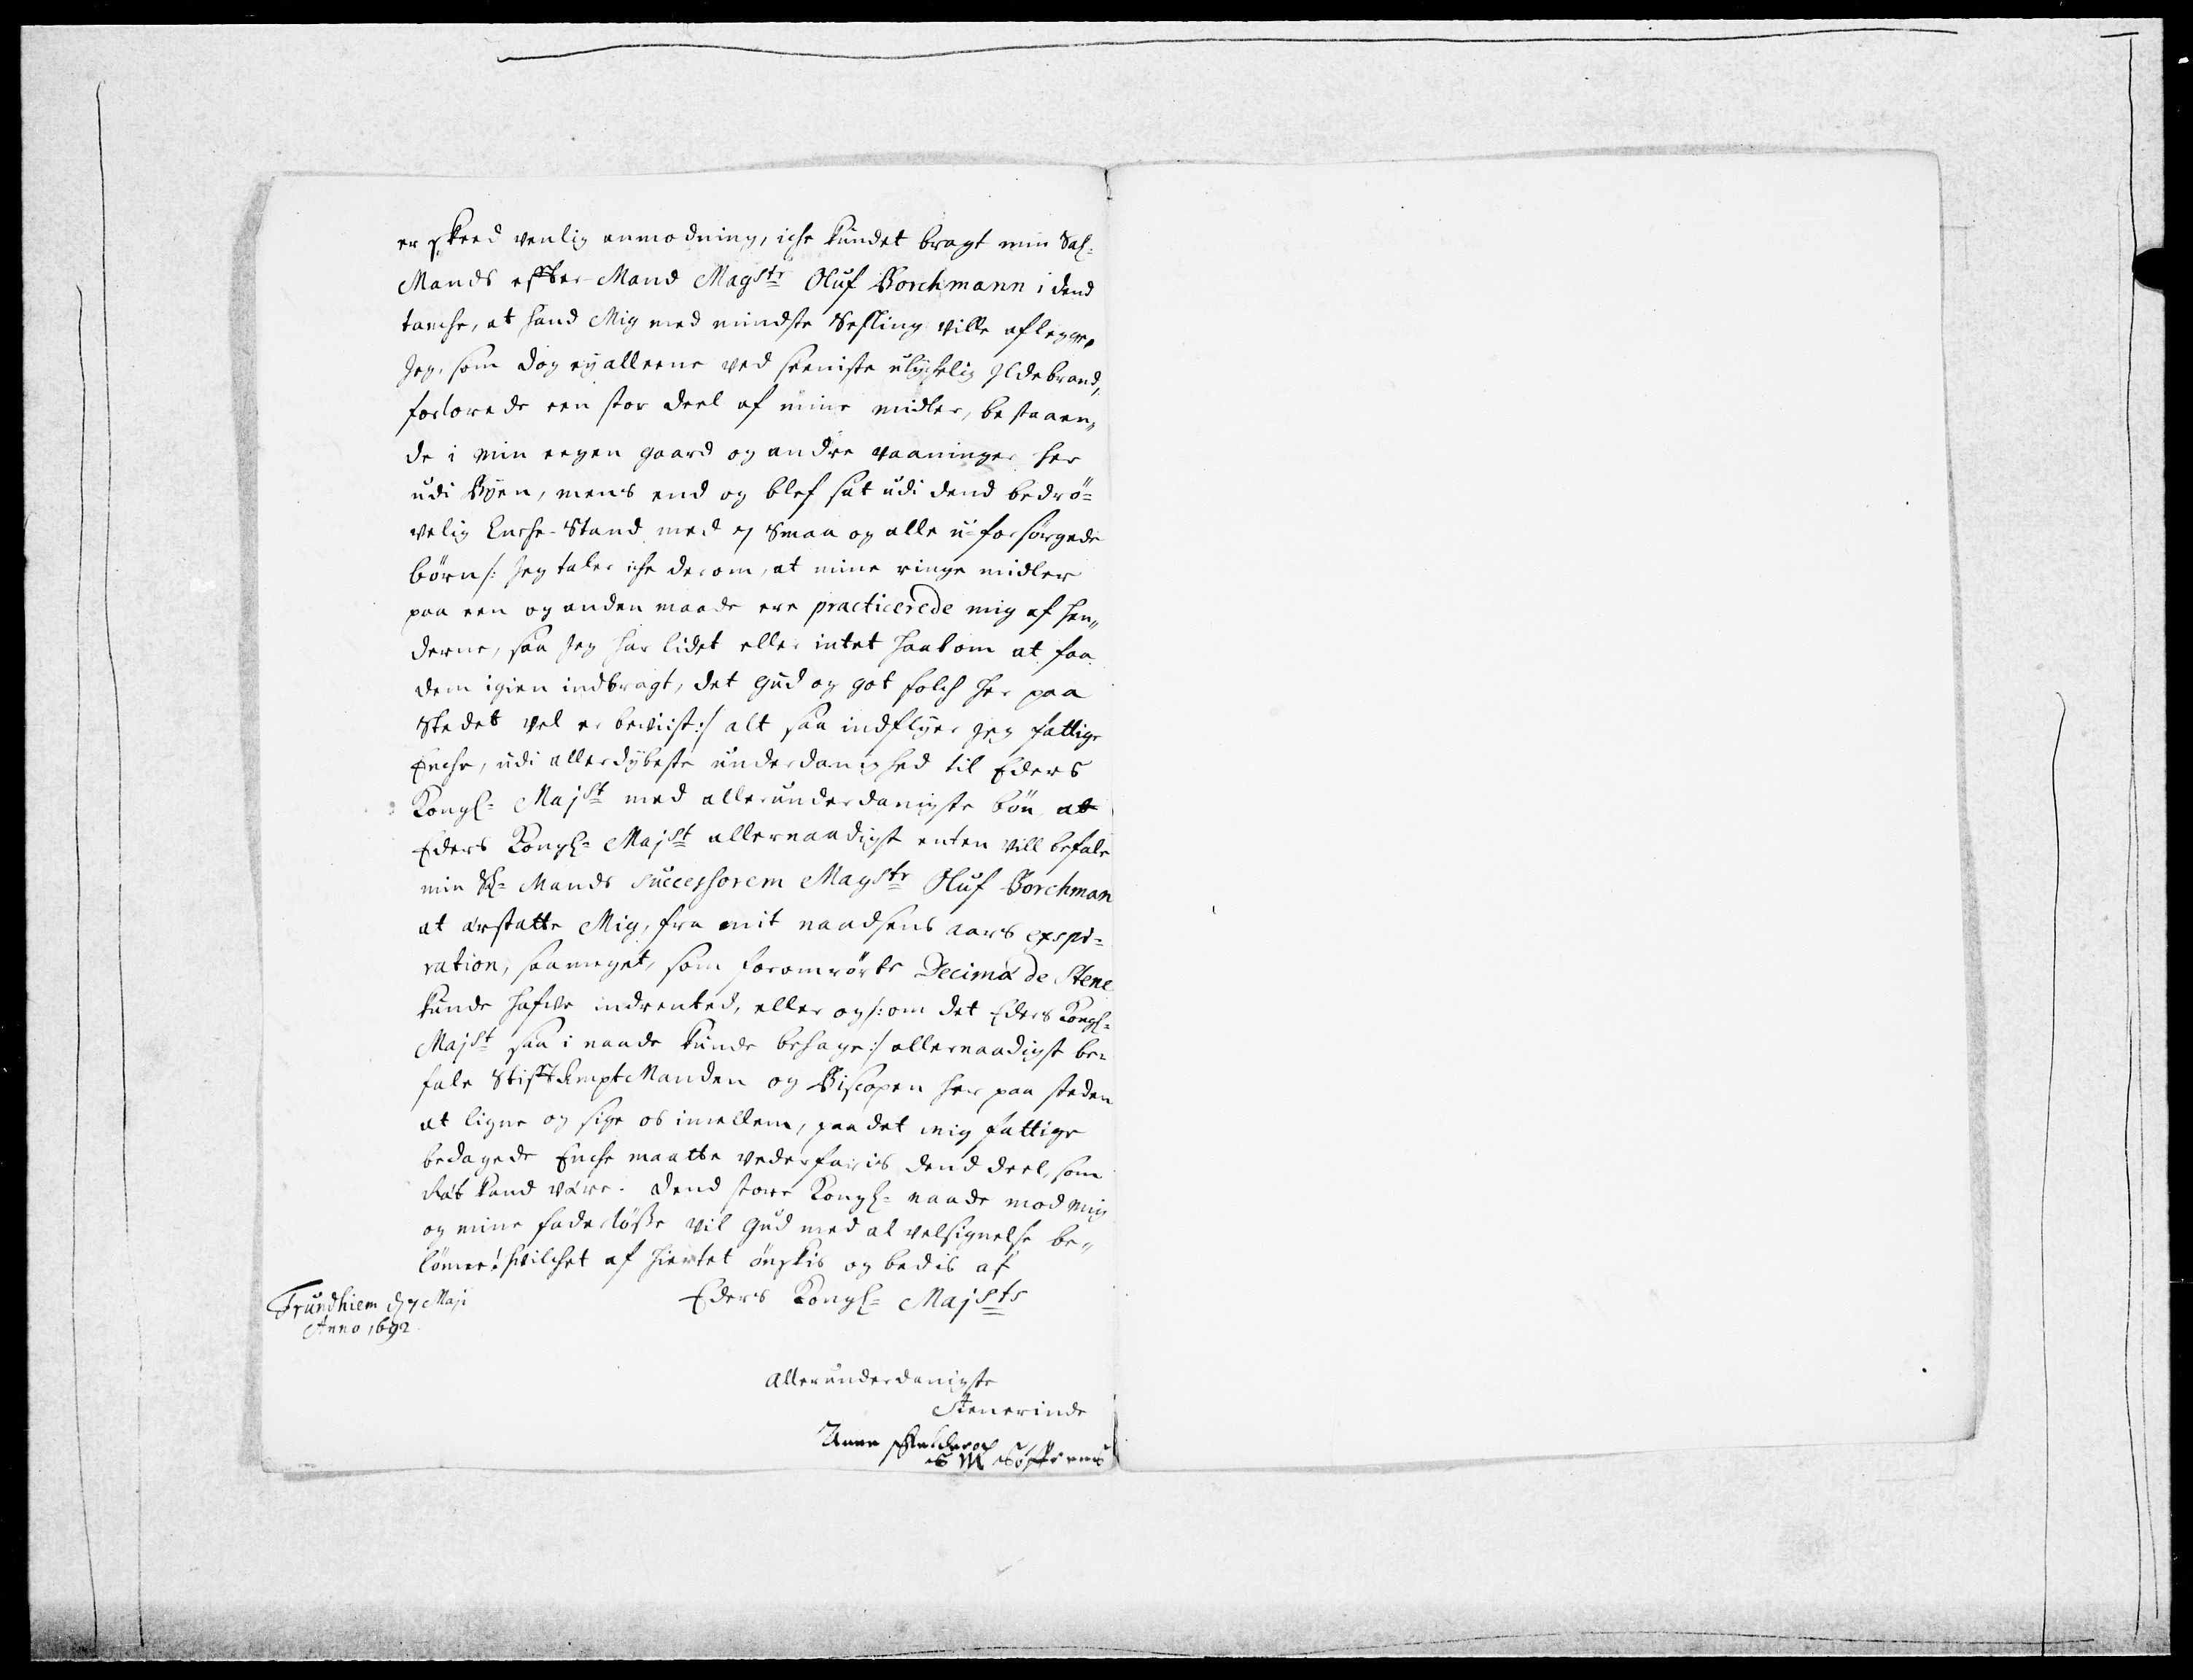 er skeed venlig anmodning, iche kundet bragt min Sal:
Mands efter-Mand Magstr Oluf Borchmann i dend
tanche, at hand Mig med mindste Schling ville aflegge,
Jeg, som dog ey alleene ved seeniste ulychelig Ildebrand,
forlorede een stor deel af mine midler, bestaaen„
de i min eegen gaard og andre vaaninger her
udi Byen, mens end og blef sat udi dend bedrö=
velig Enche-Stand med 7 Smaa og alle u-forsörgede
börn /: Jeg taler iche derom, at mine ringe midler
paa een og anden maade ere practicerede mig af hen„
derne, saa Jeg har lidet eller intet haab om at faa
dem igien indbragt, det Gud og got folch her paa
Stedet vel er beviist :/ alt saa indflyer Jeg fattige
Enche, udi allerdybeste underdanighed til Eders
Kongl= Majst med allerunderdanigste bön, at
Eders Kongl= Majst allernaadigst enten vill befale
min Sl= Mands successorem Magstr Oluf Borchman
at erstatte Mig, fra mit naadsens aars expi=
ration, saa meget, som foromrörte Decima de Stene
kunde hafve indrented, eller og /: om det Eders Kongl=
Majst saa i naade kunde behage :/ allernaadigst be=
fale StifftAmptManden og Biscopen her paa steden
at ligne og sige os imellem, paa det mig fattige
bedagede Enche maatte vederfaris dend deel, som
Ræt kand være. Dend store Kongl= naade mod mig
og mine faderlösse vil Gud med al velsignelse be„
lönne! hvilchet af hiertet önskis og bedis af
Eders Kongl= Majsts
Trundhiem d 7 Maji
Anno 1692.
Allerunderdanigste
Tienerinde
Anna
S M Söfrens